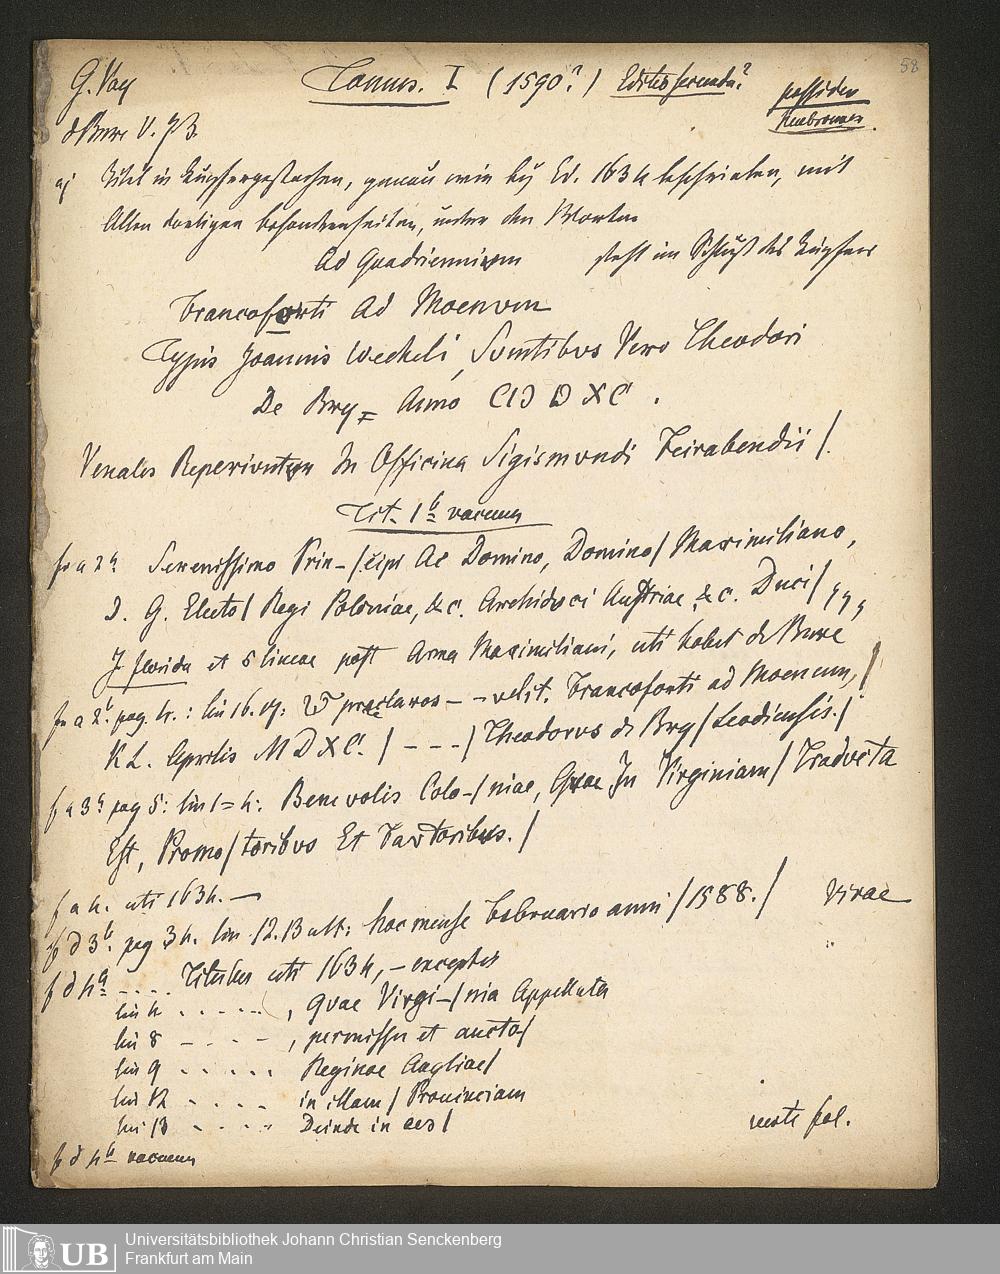 58
G. Voy Tomus. I (1590?) Editio secunda? possideo
de Bure V. 73.
a) Titel in Kupfergestochen, genau wie bey Ed. 1634 beschrieben, mit
Allen dortigen besonderheiten, unter den Worten
Ad Quadriennium steht im Schluß des Kupfers
Francoforti Ad Moenum
Typis Joannis Wecheli, Sumtibus Vero Theodori
De Bry = Anno CIↃ IↃ XC .
Venales Reperiuntur In Officina Sigismundi Feirabendii /.
Tit. 1b vacuum
fo a 2a Serenissimo Prin-/cipi Ac Domino, Domino/ Maximiliano,
D. G. Electo/ Regi Poloniae, &c. Archiduci Austriae, &c. Duci/
J florida et 5 lineae post Arma Maximiliani, uti habet de Bure
fo a 2b pag. 4. : lin 16. 17: praeclaros – – velit. Francoforti ad Moenum, /
KL. Aprilis M D XC. / – – – / Theodorus de Bry / Leodiensis. /
f a 3a pag 5: lin 1=4: Benevolis Colo-/niae, Quae In Virginiam/ Traducta
Est, Promo/toribus Et Fautoribus. /
f a 4. uti 1634. —
f d 3b. pag 34. lin 12.13 ult: hac mense Februario anni / 1588. / Vivae
f d 4a .... Titulus uti 1634, – exceptis
lin 4 ....., quae Virgi-/nia Appellata
lin 8 - - - -, permissu et aucto/
lin 9 ..... Reginae Angliae/
lin 12 .... in illam / Provinciam
lin 13 .... Deinde in aes /
verte fol.
f d 4b vacuum
UB Universitätsbibliothek Johann Christian Senckenberg
Frankfurt am Main